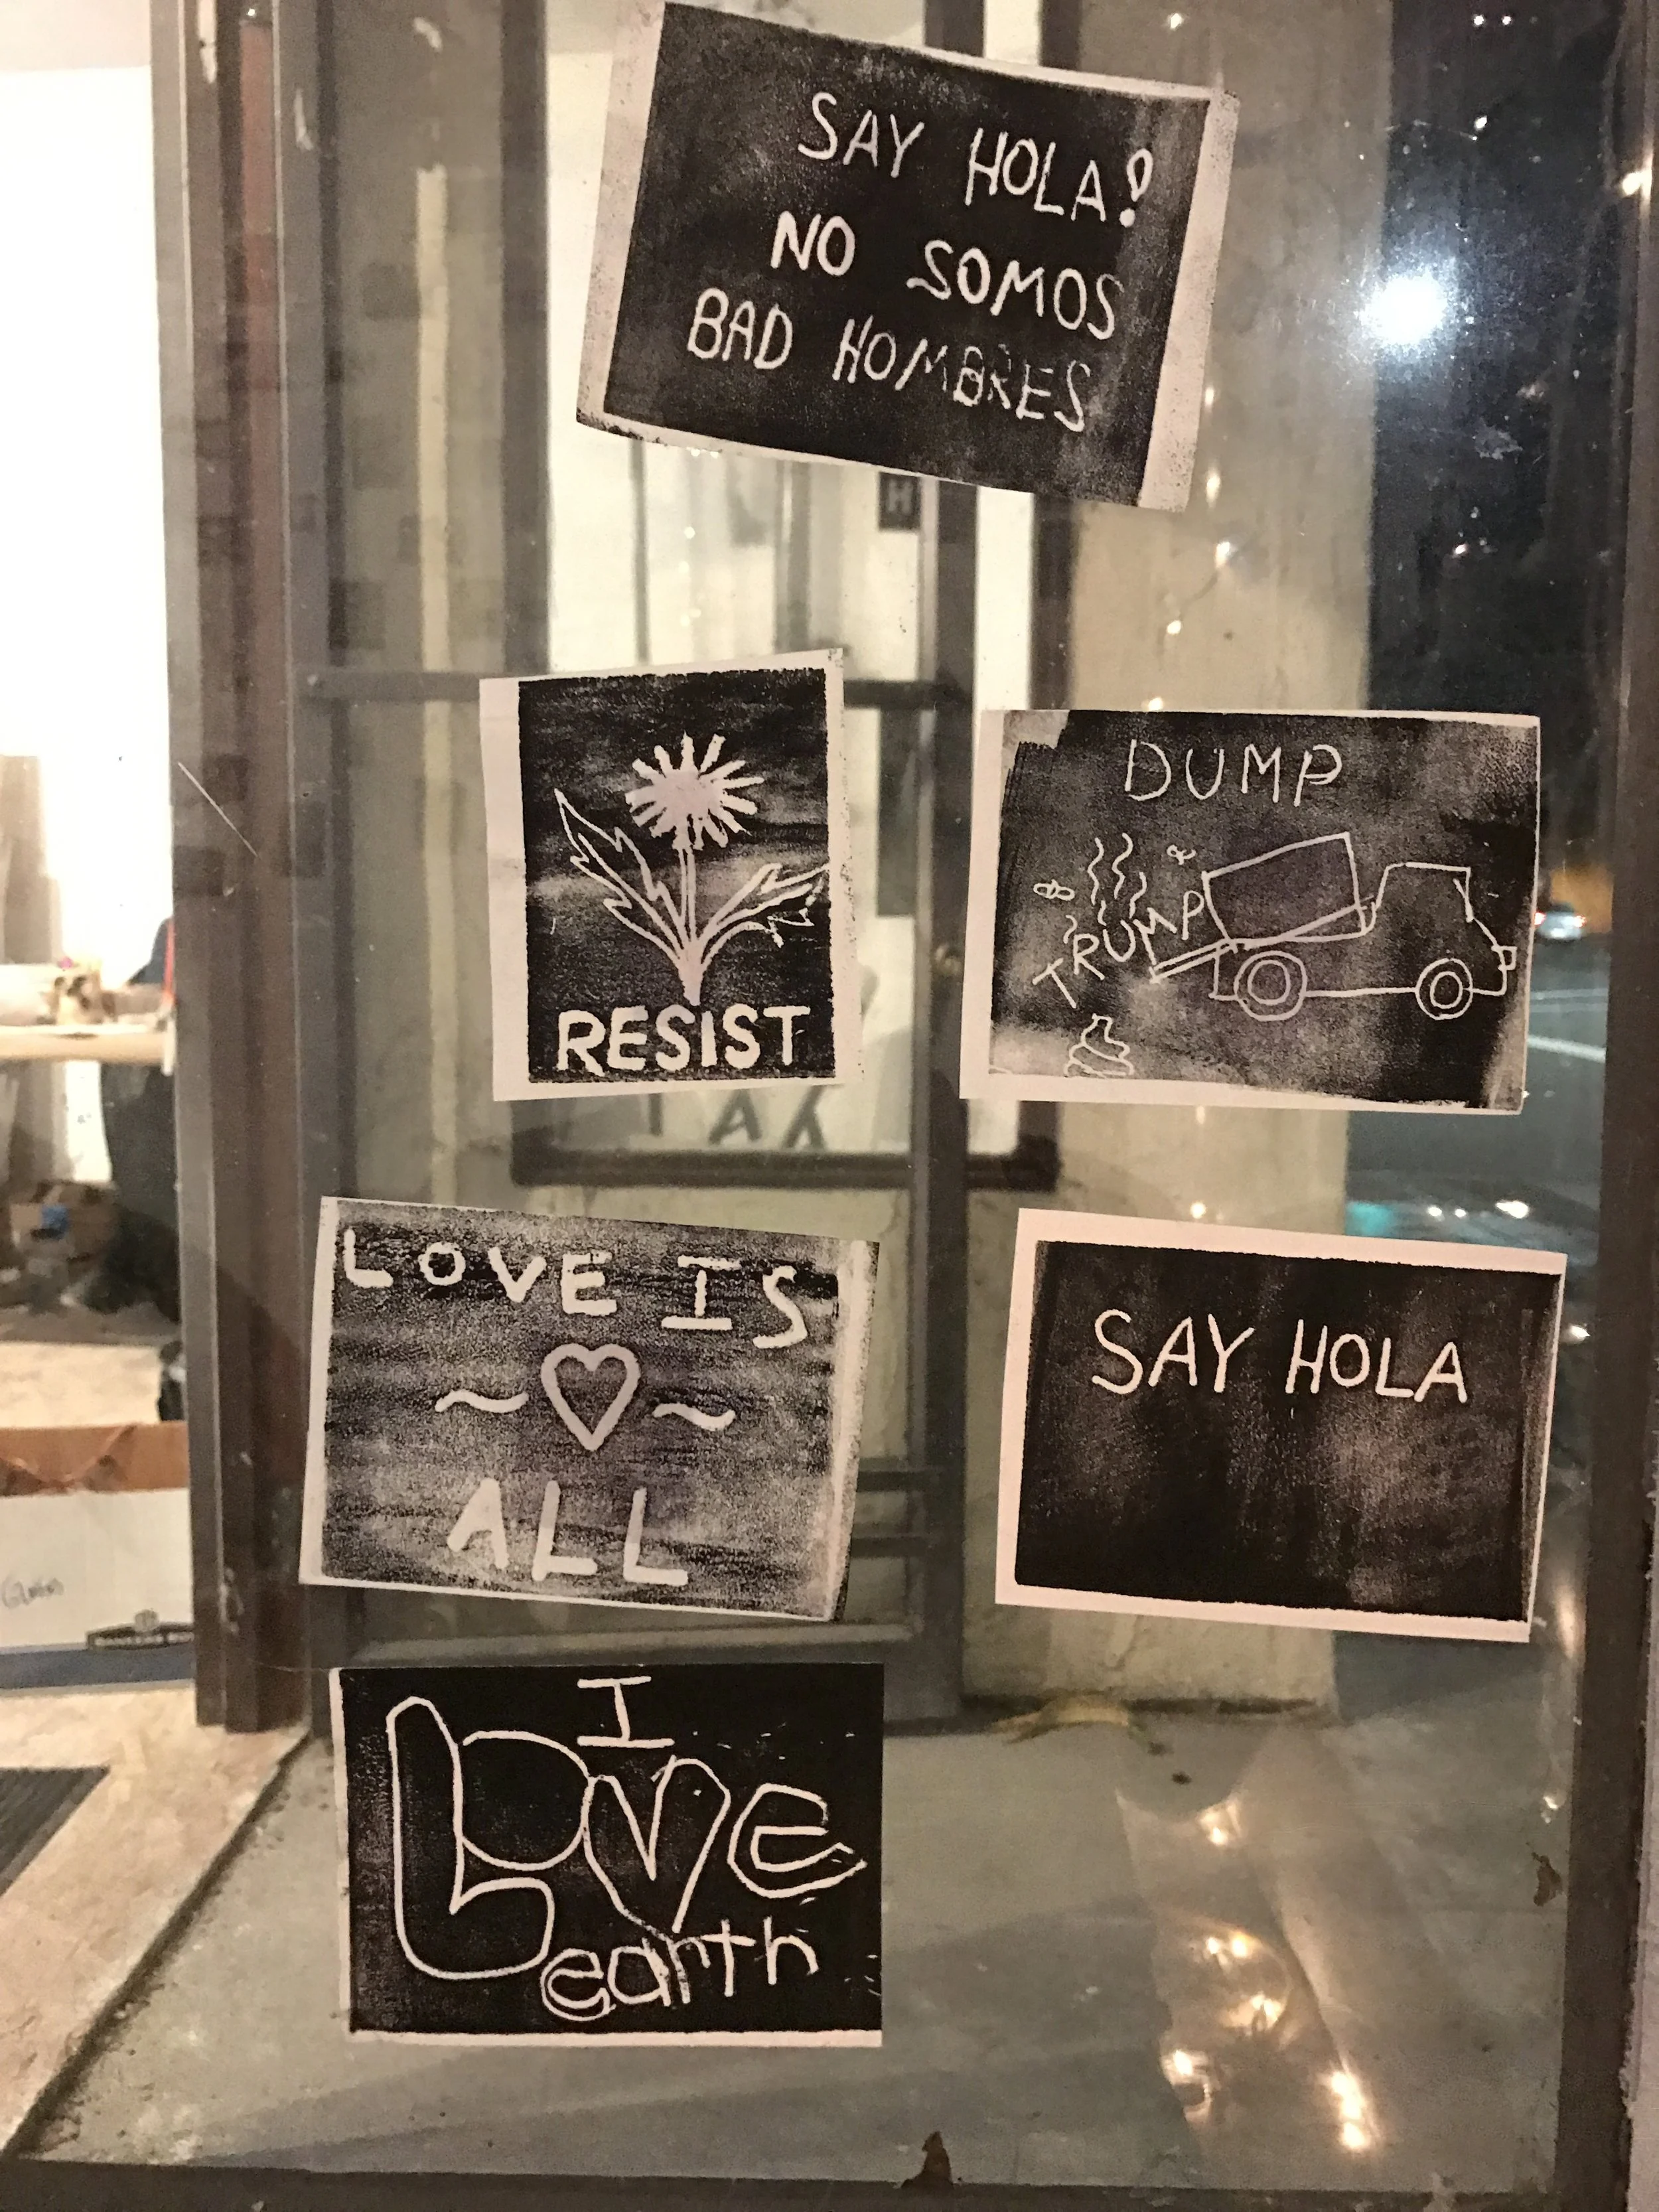 SAY HOLA!
NO SOMOS
BAD HOMBRES
H
RESIST
DUMP
TRUMP
LOVE IS
~ ~
ALL
SAY HOLA
I
LOVE
earth